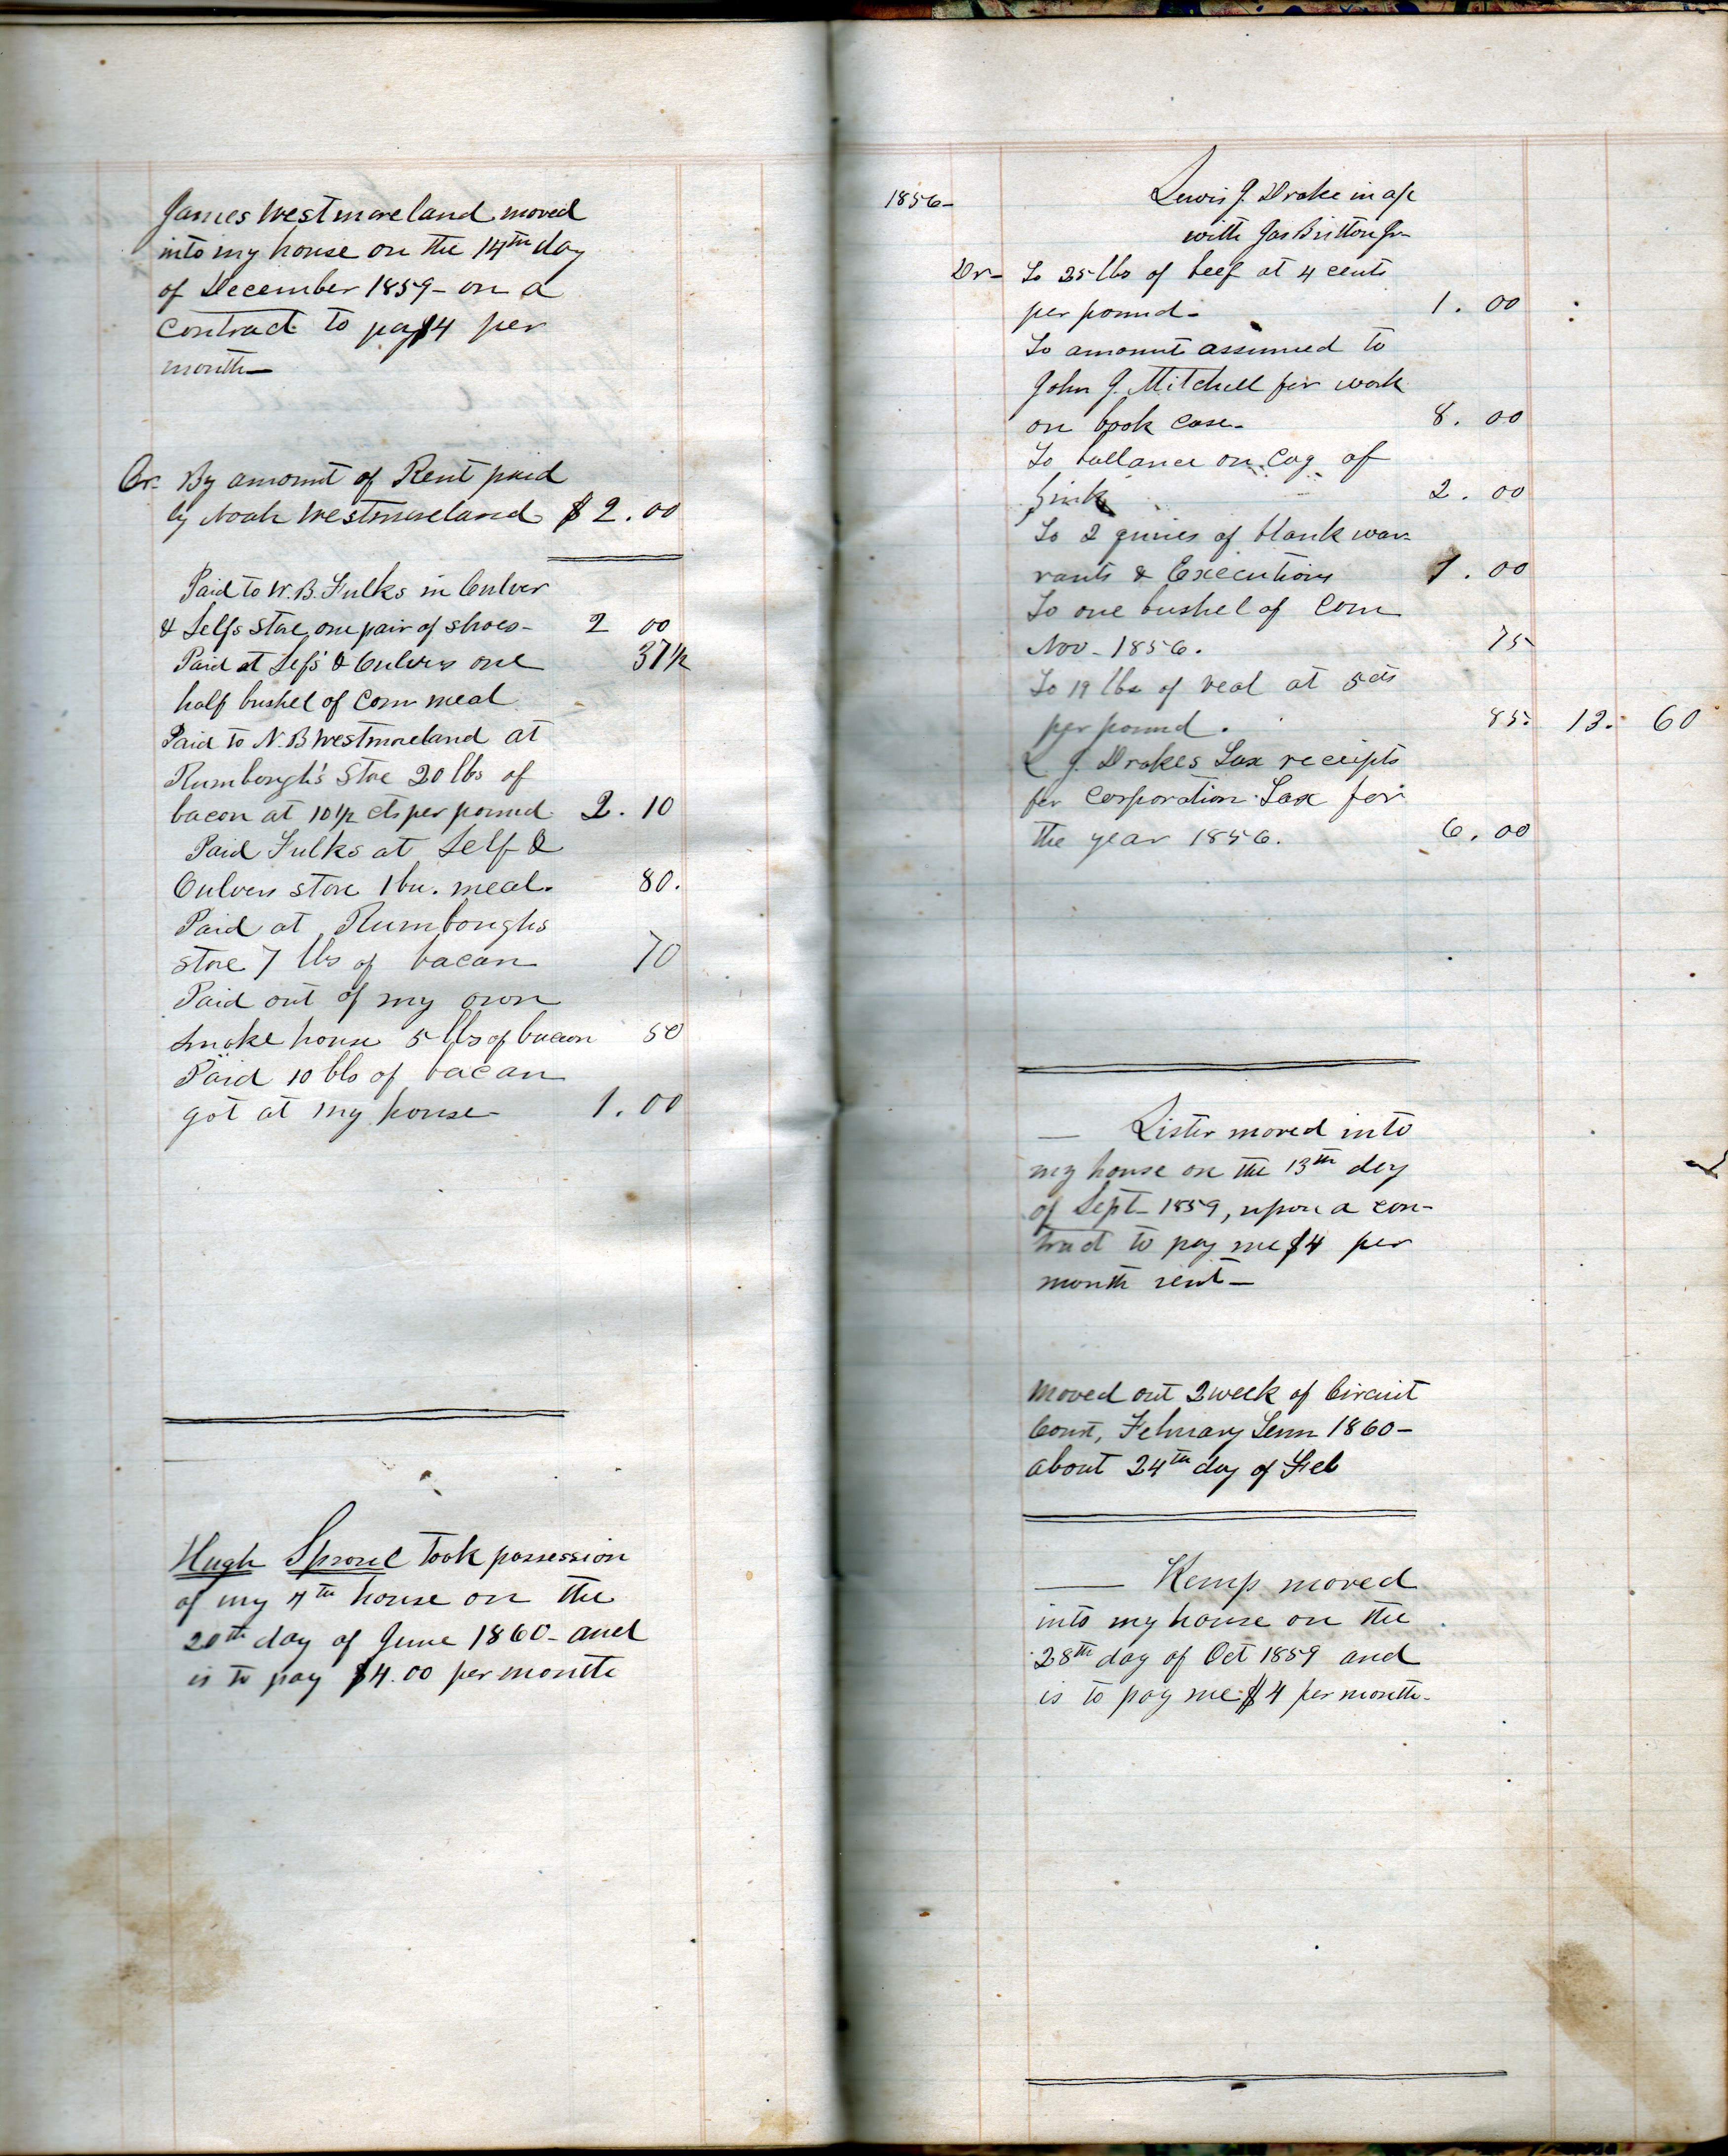 James Westmoreland moved
into my house on the 14th day
of December 1859 - on a
contract to pay $4 per
month -
Cr. By amount of Rent paid
by Noah Westmoreland $ 2.00
Paid to W. B. Fulks in Culver
& Selfs store one pair of shoes - 2 00
Paid at Selfs & Culvers one 37 1/2
half bushel of corn meal
Paid to N. B Westmoreland at
Rumbough's Store 20 lbs of
bacon at 10 1/2 cts per pound 2.10
Paid Fulks at Self &
Culvers store 1 bu. meal. 80.
Paid at Rumboughs
store 7 lbs of bacan 70
Paid out of my own
smoke house 5 lbs of bacon 50
Paid 10 lbs of bacan
got at my house - 1.00
Hugh Sproul took possession
of my 4th house on the
20th day of June 1860 - and
is to pay $4.00 per month
1856 - Lewis J. Drake in a/c
with Jas Britton Jr
Dr - To 25 lbs of beef at 4 cents
per pound - 1.00
To amount assumed to
John J. Mitchell for work
on book case - 8.00
To ballance on Cag of
2.00
To 2 quires of blank war-
rants & Executions 1.00
To one bushel of Corn
Nov - 1856. 75
To 19 lbs of veal at 5 cts
per pound. 85. 13. 60
L J. Drakes Tax receipts
for Corporation Tax for
the year 1856. 6.00
— Lister moved into
my house on the 13th day
of Sept - 1859, upon a con-
tract to pay me $4 per
month rent -
Moved out 2 week of Circuit
Court, Febuary Term 1860 -
about 24th day of Feb
— Kemp moved
into my house on the
28th day of Oct 1859 and
is to pay me $4 per month -